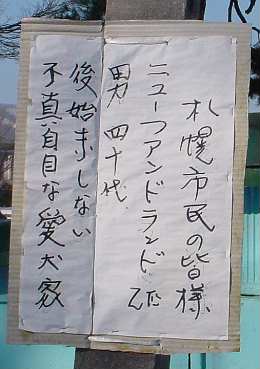 札幌市民の皆様
ニューファンドランド 2匹
男 四十代
後始末しない
不真自目な愛犬家